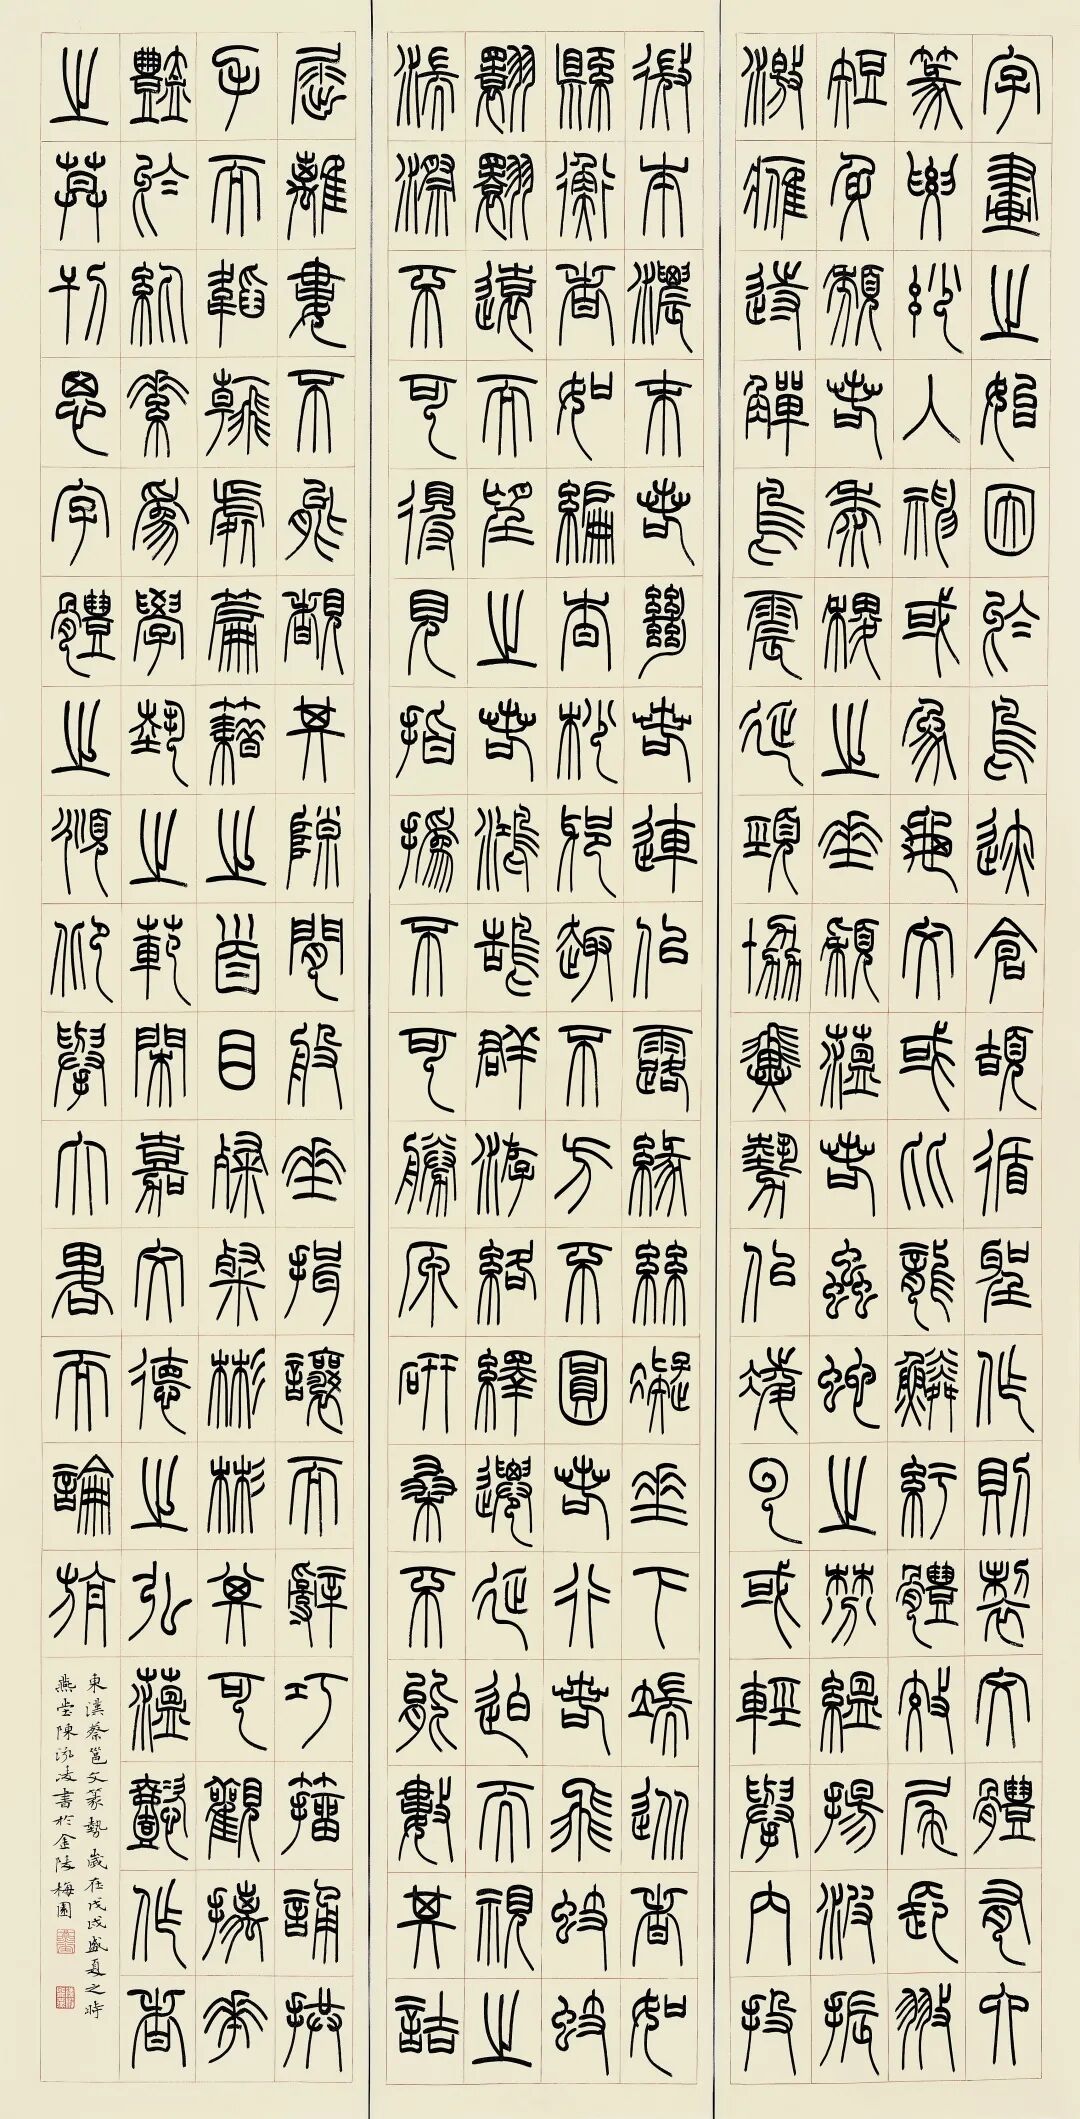 字畫之始因於鳥跡倉頡循聖作則製文體有六
篆要妙入神或象龜文或比龍鱗紆體效尾長翅
短身頹若黍稷之垂穎蘊若蟲蛇之棼縕揚波振
激鷹跱觶鳥震延頸協翼勢似凌雲或輕舉內投
微本濃末若絕若連似露緣絲凝垂下端從者如
縣衡者如編杳杪邪趣不方不圓若行若飛蚑蚑
翾翾遠而望之若鴻鵠群游絡繹遷延迫而視之
湍漈不可得見指撝不可勝原研桑不能數其詰
屈離婁不能覩其隙間般垂揖讓而辭巧籀誦拱
手而韜翰處篇籍之首目粲粲彬彬其可觀摛華
豔於紈素為學藝之範閑嘉文德之弘蘊懿作者
之莫刊思字體之頫仰舉大略而論旃
東漢蔡邕文篆勢歲在戊戌盛夏之時
燕堂陳泳凌書於金陵梅園